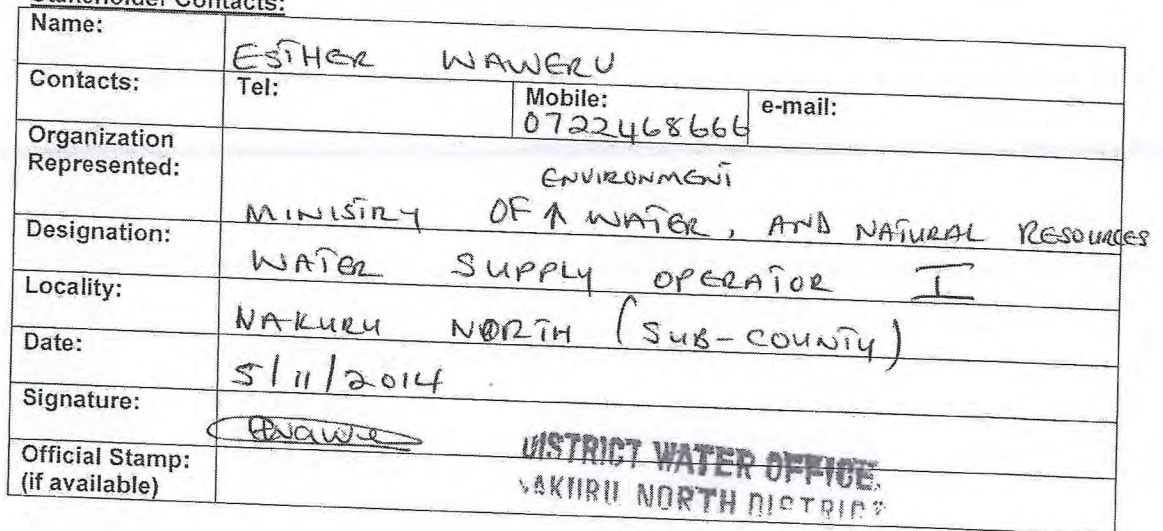 Stakeholder Contacts:
Name: ESTHER WAWERU
Contacts: Tel: Mobile: e-mail:
0722468666
Organization
Represented:
ENVIRONMENT
MINISTRY OF ↑ WATER, AND NATURAL RESOURCES
Designation: WATER SUPPLY OPERATOR I
Locality: NAKURU NORTH (SUB-COUNTY)
Date: 5/11/2014
Signature:
Official Stamp:
(if available)
DISTRICT WATER OFFICE
NAKURU NORTH DISTRICT